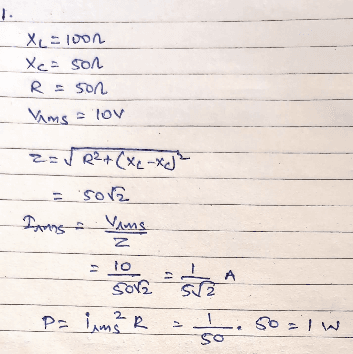 1.
X_L = 100Ω
X_C = 50Ω
R = 50Ω
Vrms = 10V
Z = √R²+(X_L-X_C)²
= 50√2
Irms = Vrms/Z
= 10/50√2 = 1/5√2 A
P = i_rms² R = 1/50 . 50 = 1 W